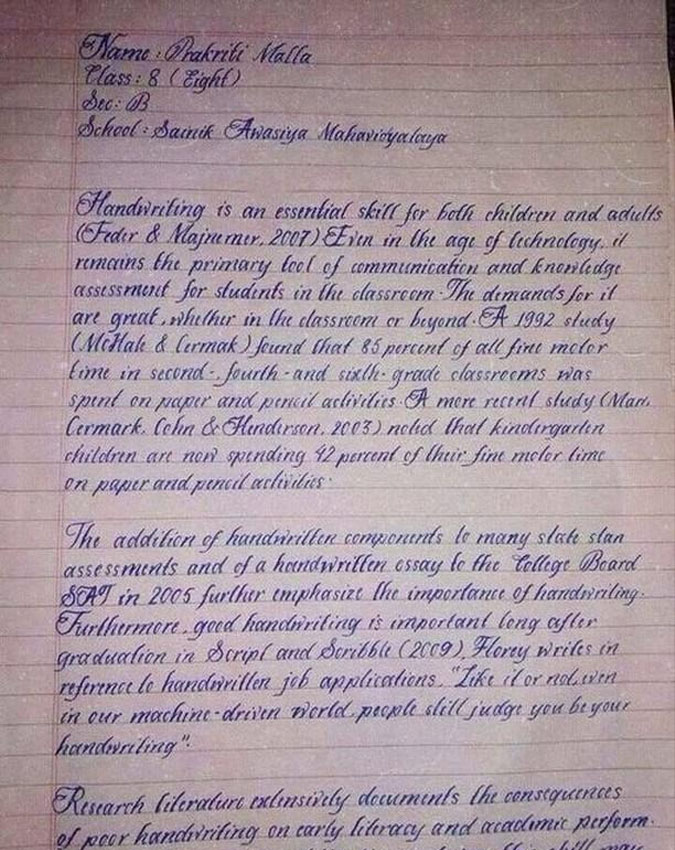 Name : Prakriti Malla
Class : 8 ( Eight )
Sec : B
School : Sainik Awasiya Mahavidyalaya
Handwriting is an essential skill for both children and adults
(Feder & Majnemer, 2007) Even in the age of technology, it
remains the primary tool of communication and knowledge
assessment for students in the classroom. The demands for it
are great, whether in the classroom or beyond. A 1992 study
(McHale & Cermak) found that 85 percent of all fine motor
time in second-, fourth-and sixth-grade classrooms was
spent on paper and pencil activities. A more recent study (Marr,
Cermark, Cohn & Henderson, 2003) noted that kindergarten
children are now spending 42 percent of their fine motor time
on paper and pencil activities.
The addition of handwritten components to many state stan
assessments and of a handwritten essay to the College Board
SAT in 2005 further emphasize the importance of handwriting.
Furthermore, good handwriting is important long after
graduation in Script and Scribble (2009), Florey writes in
reference to handwritten job applications, "Like it or not, even
in our machine-driven world, people still judge you be your
handwriting".
Research literature extensively documents the consequences
of poor handwriting on early literacy and academic perform.
skill may